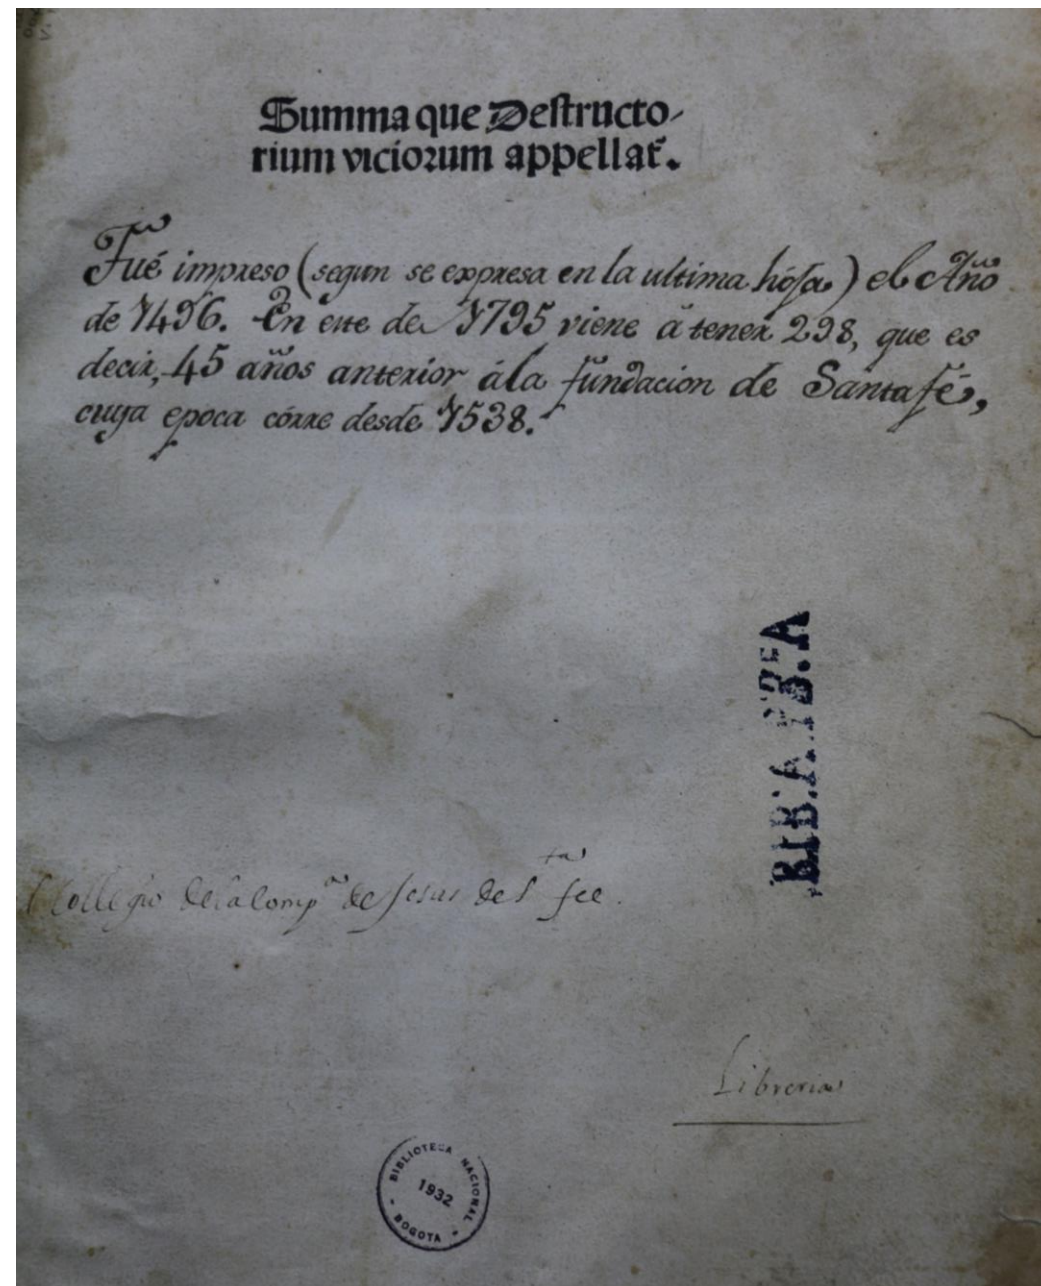 Summa que Destructo-
rium viciorum appellat̃.
Fué impreso (segun se expresa en la ultima hója) el Año
de 1496. En este de 1795 viene á tener 298, que es
decir, 45 años anterior á la fundacion de Santafé,
cuya epoca córre desde 1538.
Collegio de la Comp.ª de Jesus de S.ta fee.
Libreria
BIBLIOTECA NACIONAL
1932
BOGOTA